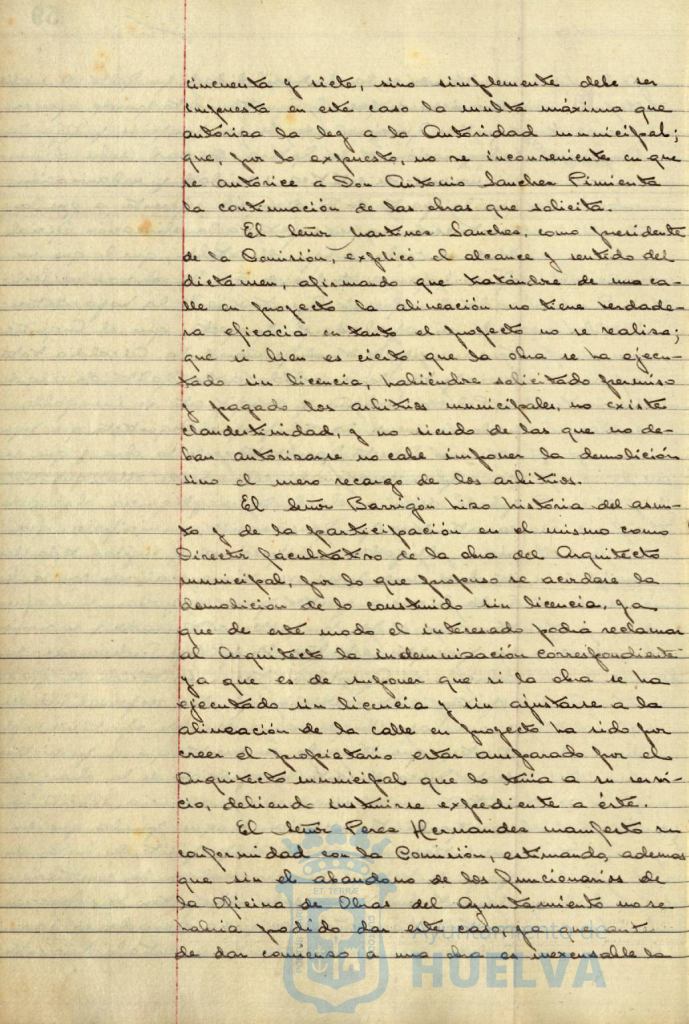 cincuenta y siete, sino simplemente debe ser
impuesta en este caso la multa máxima que
autoriza la ley a la Autoridad municipal;
que, por lo expuesto, no ve inconveniente en que
se autorice a Don Antonio Sanchez Pimienta
la continuación de las obras que solicita.
El Señor Martinez Sanchez, como presidente
de la Comisión, explicó el alcance y sentido del
dictamen, afirmando que tratándose de una ca-
lle en proyecto la alineación no tiene verdade-
ra eficacia en tanto el proyecto no se realiza;
que si bien es cierto que la obra se ha ejecu-
tado sin licencia, habiéndose solicitado permiso
y pagado los arbitrios municipales, no existe
clandestinidad, y no siendo de las que no de-
ban autorizarse no cabe imponer la demolición
sino el mero recargo de los arbitrios.
El Señor Barrigón hizo historia del asun-
to y de la participación en el mismo como
Director facultativo de la obra del Arquitecto
municipal, por lo que propuso se acordase la
demolición de lo construido sin licencia, ya
que de este modo el interesado podrá reclamar
al Arquitecto la indemnización correspondiente
ya que es de suponer que si la obra se ha
ejecutado sin licencia y sin ajustarse a la
alineación de la calle en proyecto ha sido por
creer el propietario estar amparado por el
Arquitecto municipal que lo tenia a su servi-
cio, debiendo instruirse expediente a éste.
El Señor Perez Hernandez manifestó su
conformidad con la Comisión, estimando, ademas
que sin el abandono de los funcionarios de
la Oficina de Obras del Ayuntamiento no se
habria podido dar este caso, ya que antes
de dar comienzo a una obra es inexcusable la
Ayuntamiento de
HUELVA